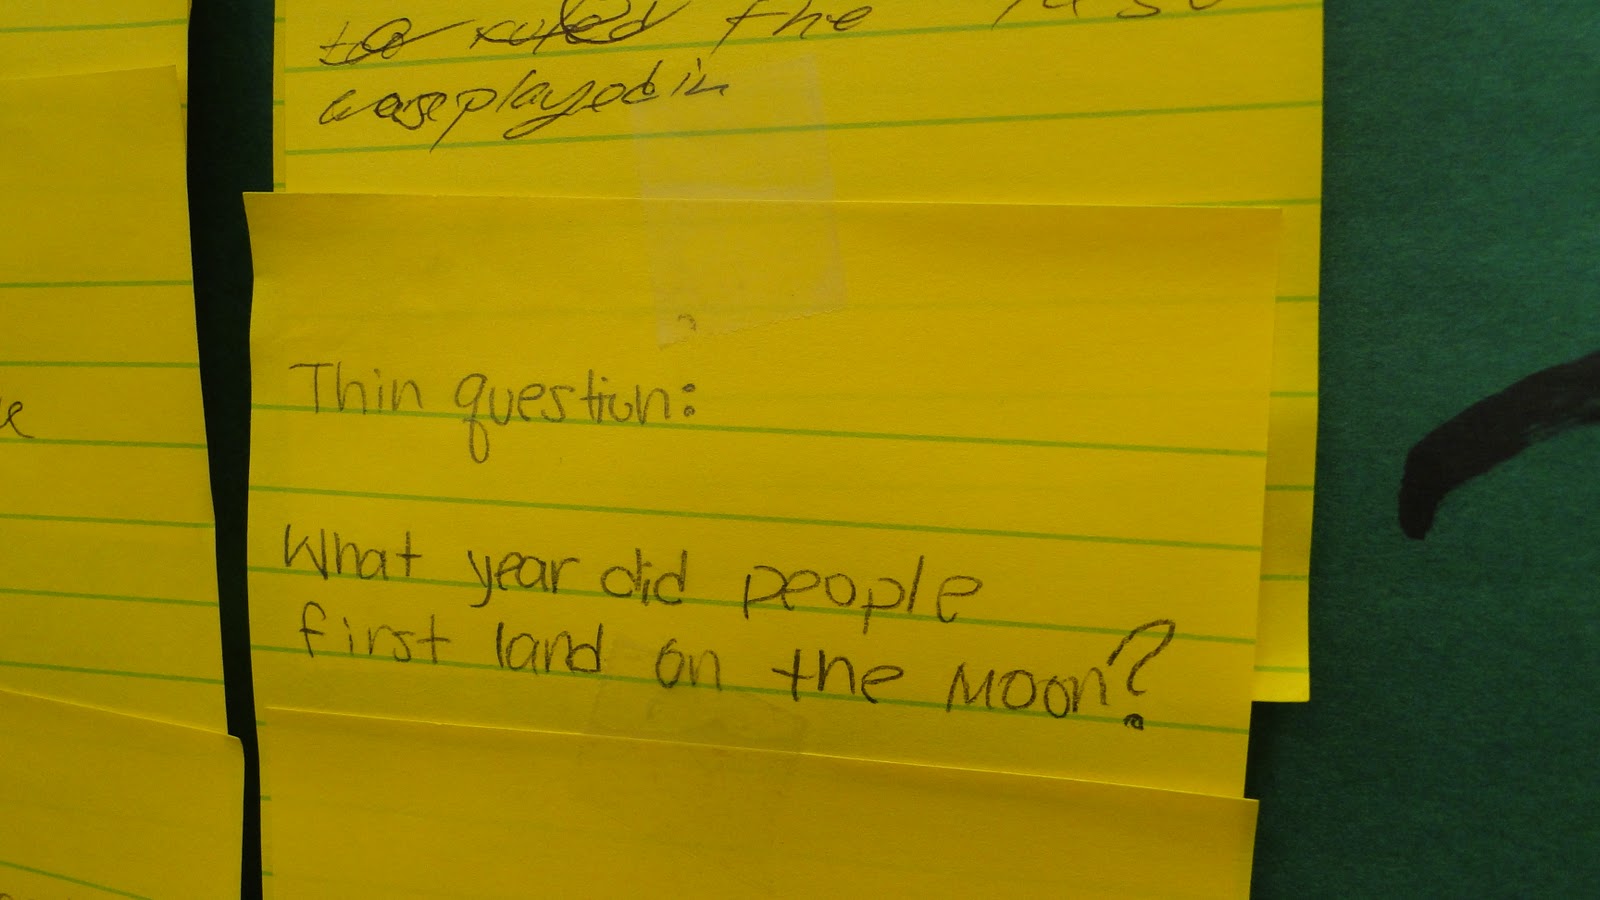 the
played in
Thin question:
What year did people
first land on the Moon?